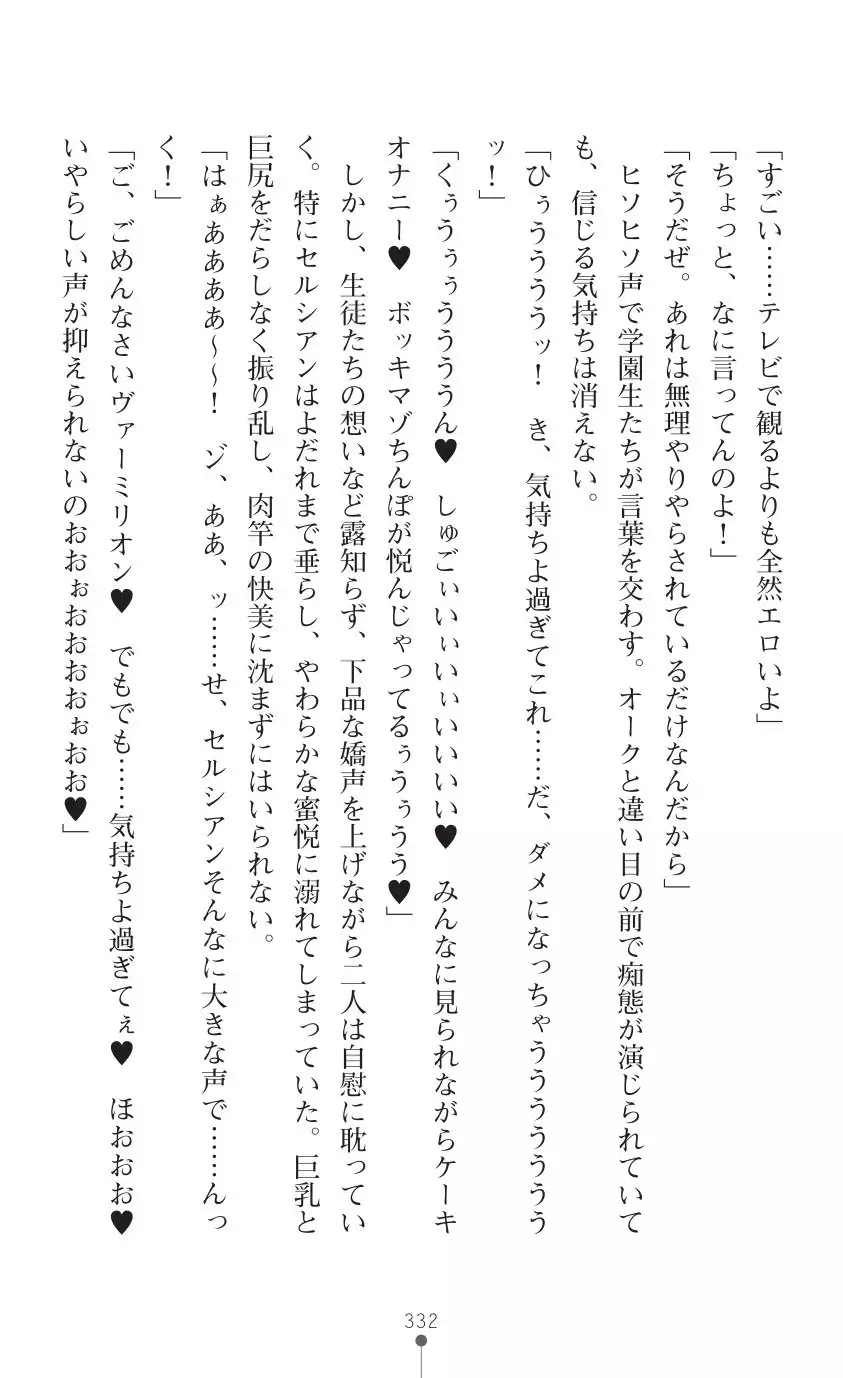 「すごい……テレビで観るよりも全然エロいよ」
「ちょっと、なに言ってんのよ！」
「そうだぜ。あれは無理やりやらされているだけなんだから」
　ヒソヒソ声で学園生たちが言葉を交わす。オークと違い目の前で痴態が演じられていて
も、信じる気持ちは消えない。
「ひぅうううッ！　き、気持ちよ過ぎてこれ……だ、ダメになっちゃうううううう
ッ！」
「くぅうぅぅうううん♥　しゅごぃいぃいぃいいいい♥　みんなに見られながらケーキ
オナニー♥　ボッキマゾちんぽが悦んじゃってるぅうぅうう♥」
　しかし、生徒たちの想いなど露知らず、下品な嬌声を上げながら二人は自慰に耽ってい
く。特にセルシアンはよだれまで垂らし、やわらかな蜜悦に溺れてしまっていた。巨乳と
巨尻をだらしなく振り乱し、肉竿の快美に沈まずにはいられない。
「はぁああああ～～！　ゾ、ああ、ッ……せ、セルシアンそんなに大きな声で……んっ
く！」
「ご、ごめんなさいヴァーミリオン♥　でもでも……気持ちよ過ぎてぇ♥　ほおおお♥
いやらしい声が抑えられないのおおぉおおおおぉおお♥」
332